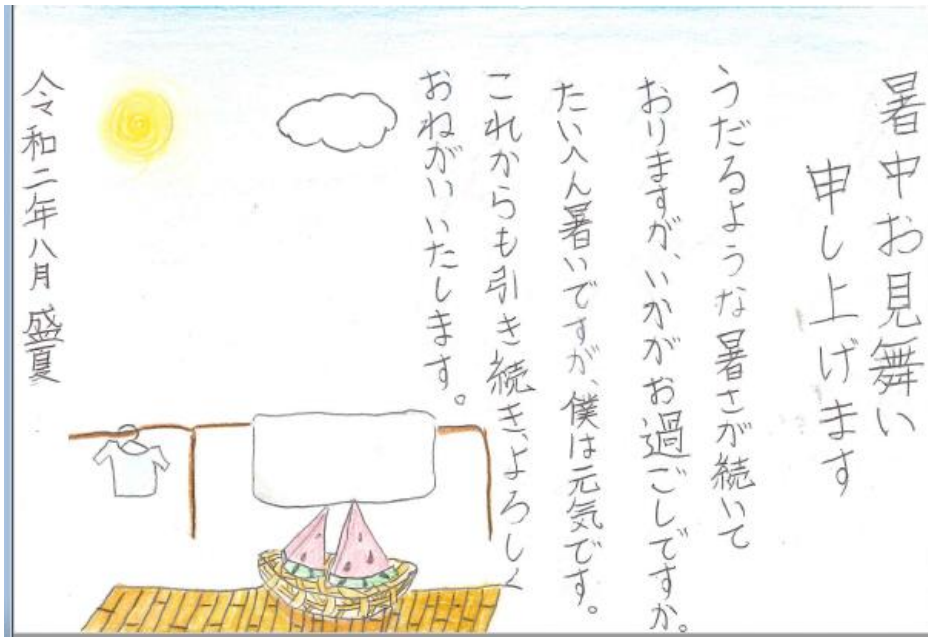 暑中お見舞い
申し上げます
うだるような暑さが続いて
おりますが、いかがお過ごしですか。
たいへん暑いですが、僕は元気です。
これからも引き続き、よろしく
おねがいいたします。
令和二年八月 盛夏